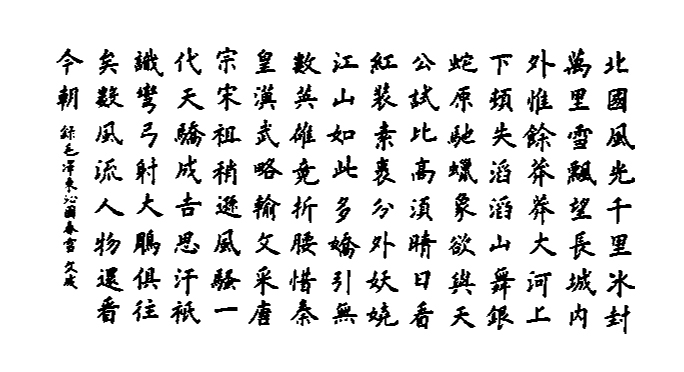 北國風光千里冰封
萬里雪飄望長城內
外惟餘莽莽大河上
下頓失滔滔山舞銀
蛇原馳蠟象欲與天
公試比高須晴日看
紅裝素裹分外妖嬈
江山如此多嬌引無
數英雄竟折腰惜秦
皇漢武略輸文采唐
宗宋祖稍遜風騷一
代天驕成吉思汗祇
識彎弓射大鵰俱往
矣數風流人物還看
今朝 錄毛澤東沁園春雪 文成